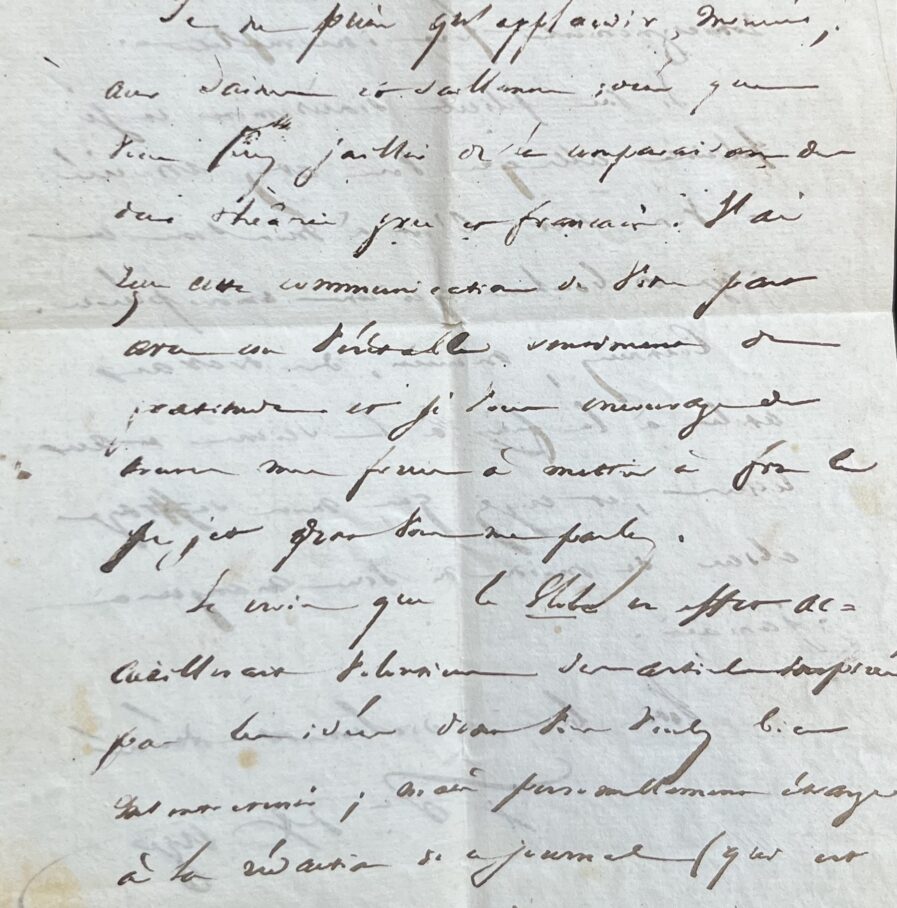 Je ne puis qu'applaudir, Monsieur,
aux saines et vaillantes idées que
vous faites jaillir de la comparaison des
deux théâtres grec et français. J'ai
reçu cette communication de votre part
avec un véritable sentiment de
gratitude et je vous encourage de
toutes mes forces à mettre à fin le
projet dont vous me parlez.
Je crois que le Globe en effet ac=
cueillerait volontiers des articles inspirés
par les idées dont vous voulez bien
m'entretenir ; mais personnellement étranger
à la rédaction de ce journal (qui est